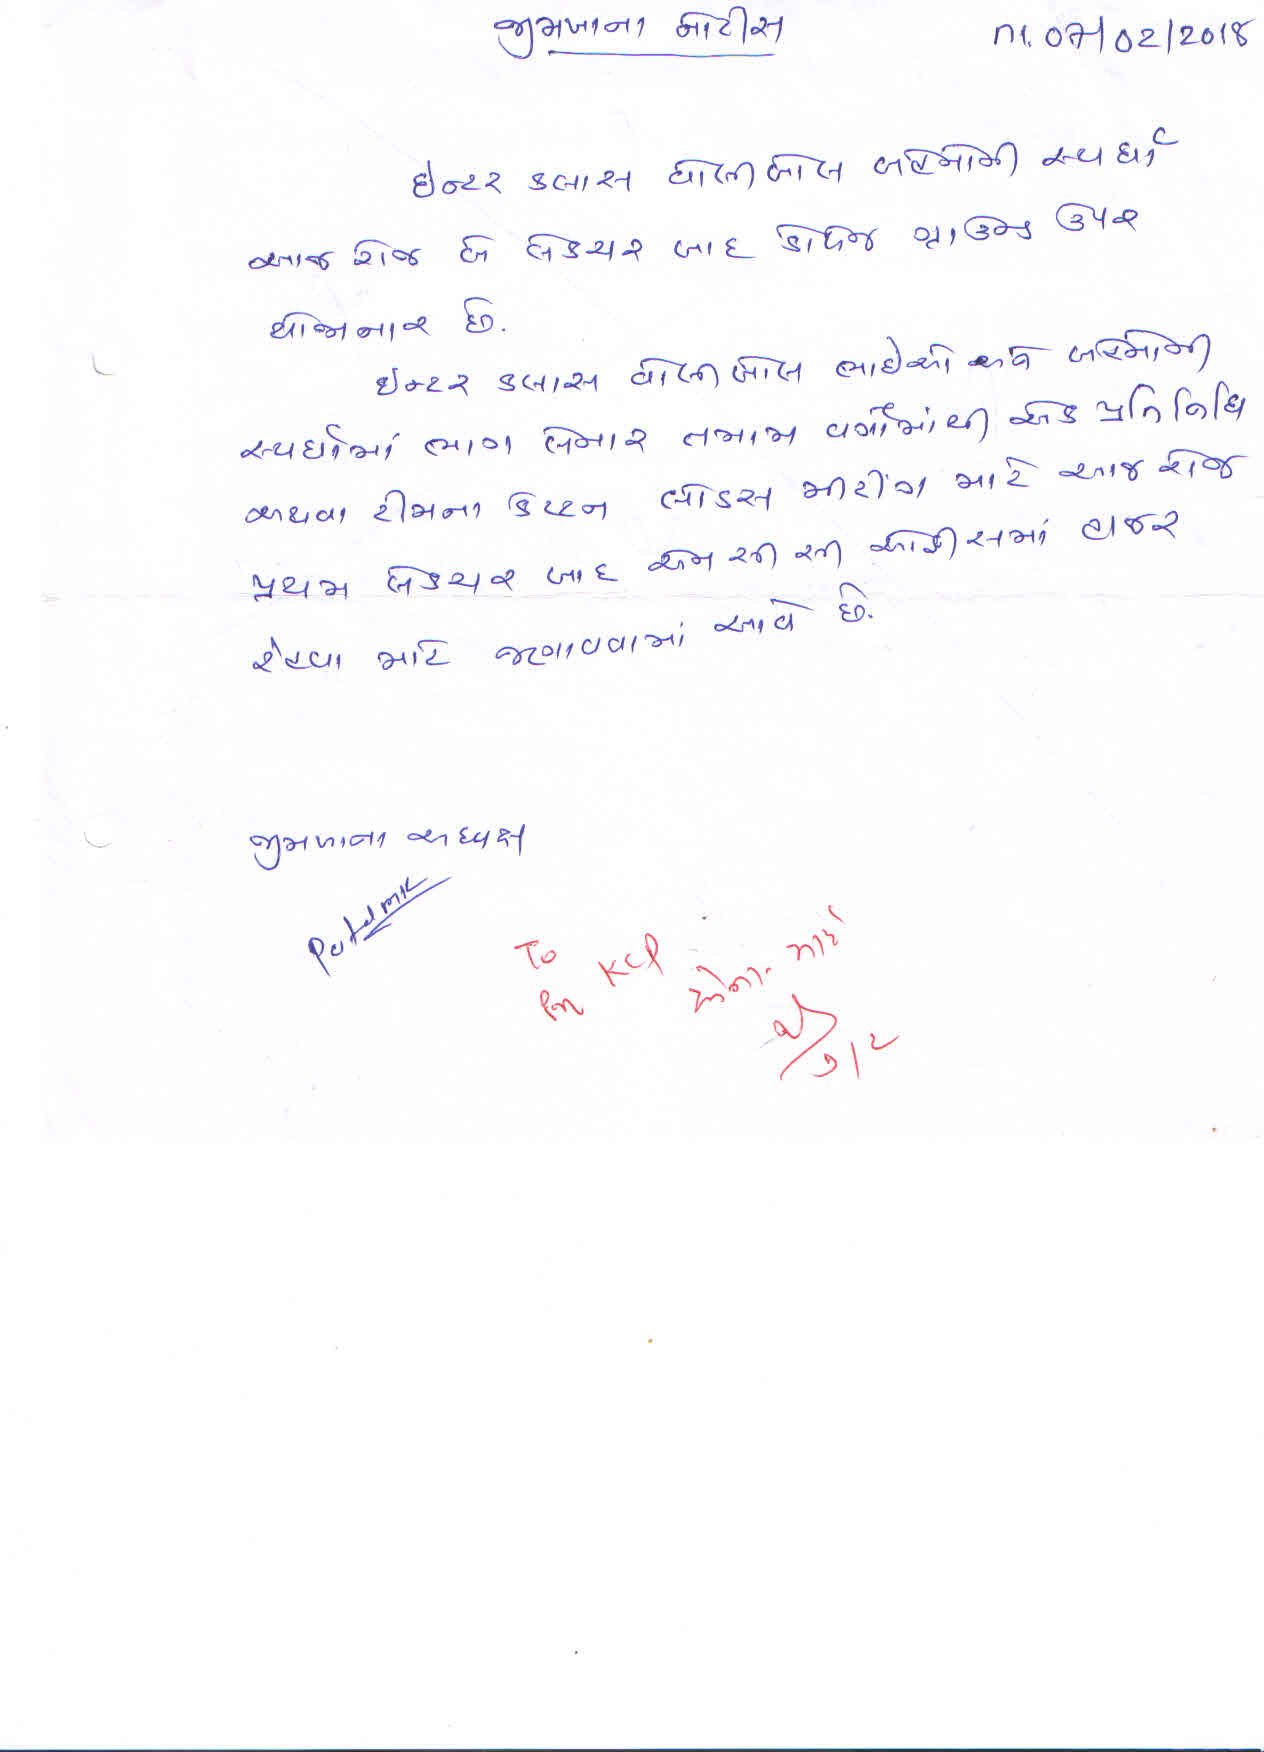 જીમખાના નોટીસ
તા. 07/02/2018
ઇન્ટર કલાસ વોલીબોલ બહેનોની સ્પર્ધા
આજ રોજ બે લેકચર બાદ કોલેજ ગ્રાઉન્ડ ઉપર
યોજાનાર છે.
ઇન્ટર કલાસ વોલીબોલ ભાઇઓ અને બહેનોની
સ્પર્ધામાં ભાગ લેનાર તમામ વર્ગોમાંથી એક પ્રતિનિધિ
અથવા ટીમના કેપ્ટન લોડસ મીટીંગ માટે આજ રોજ
પ્રથમ લેકચર બાદ એન સી સી ઓફીસમાં હાજર
રહેવા માટે જણાવવામાં આવે છે.
જીમખાના અધ્યક્ષ
Patel MK
To
KCP